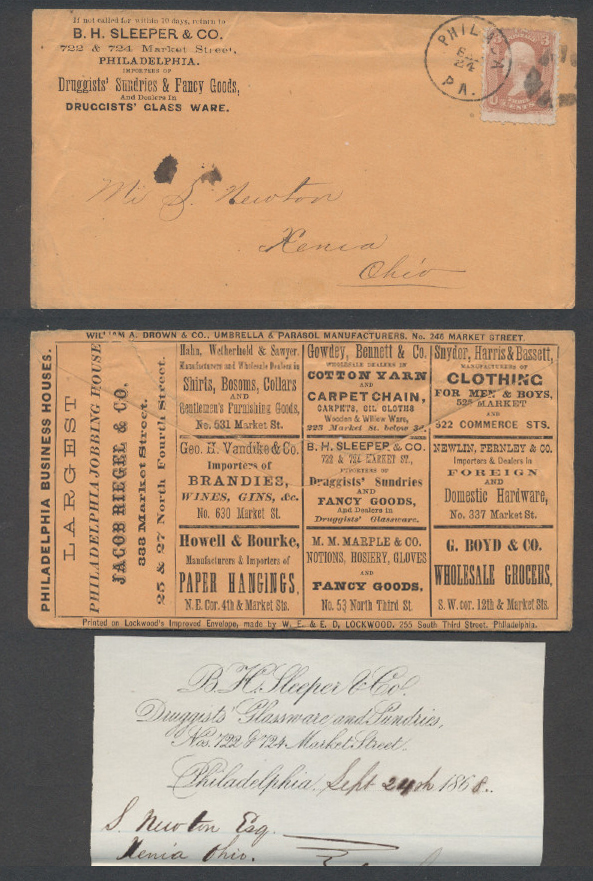 If not called for within 10 days, return to
B. H. SLEEPER & CO.
722 & 724 Market Street,
PHILADELPHIA.
IMPORTERS OF
Druggists' Sundries & Fancy Goods,
And Dealers in
DRUGGISTS' GLASS WARE.
PHILA
24
PA.
3
Mr S. Newton
Xenia
Ohio
WILLIAM A. DROWN & CO., UMBRELLA & PARASOL MANUFACTURERS, No. 246 MARKET STREET.
PHILADELPHIA BUSINESS HOUSES.
LARGEST
PHILADELPHIA JOBBING HOUSE
JACOB RIEGEL & CO.
333 Market Street.
25 & 27 North Fourth Street.
Hahn, Wetherhold & Sawyer,
Manufacturers and Wholesale Dealers in
Shirts, Bosoms, Collars
AND
Gentlemen's Furnishing Goods,
No. 531 Market St.
Geo. H. Vandike & Co.
Importers of
BRANDIES,
WINES, GINS, &c.
No. 630 Market St.
Howell & Bourke,
Manufacturers & Importers of
PAPER HANGINGS,
N. E. Cor. 4th & Market Sts.
Gowdey, Bennett & Co.
WHOLESALE DEALERS IN
COTTON YARN
AND
CARPET CHAIN,
CARPETS, OIL CLOTHS
Wooden & Willow Ware,
223 Market St. below 3d.
B. H. SLEEPER & CO.
722 & 724 MARKET ST.,
IMPORTERS OF
Druggists' Sundries
AND
FANCY GOODS,
And Dealers in
Druggists' Glassware.
M. M. MARPLE & CO.
NOTIONS, HOSIERY, GLOVES
AND
FANCY GOODS,
No. 53 North Third St.
Snyder, Harris & Bassett,
MANUFACTURERS OF
CLOTHING
FOR MEN & BOYS,
525 MARKET
AND
522 COMMERCE STS.
NEWLIN, FERNLEY & CO.
Importers & Dealers in
FOREIGN
AND
Domestic Hardware,
No. 337 Market St.
G. BOYD & CO.
WHOLESALE GROCERS,
S. W. cor. 12th & Market Sts.
Printed on Lockwood's Improved Envelope, made by W. E. & E. D. LOCKWOOD, 255 South Third Street, Philadelphia.
B. H. Sleeper & Co.
Druggists' Glassware and Sundries,
Nos. 722 & 724 Market Street,
Philadelphia, Sept 24th 1868.
S. Newton Esq.
Xenia Ohio.